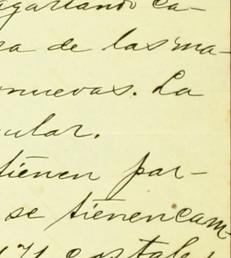 agartando ca-
sa de las ma-
nuevas. La
ular.
tienen par-
se tienen cam-